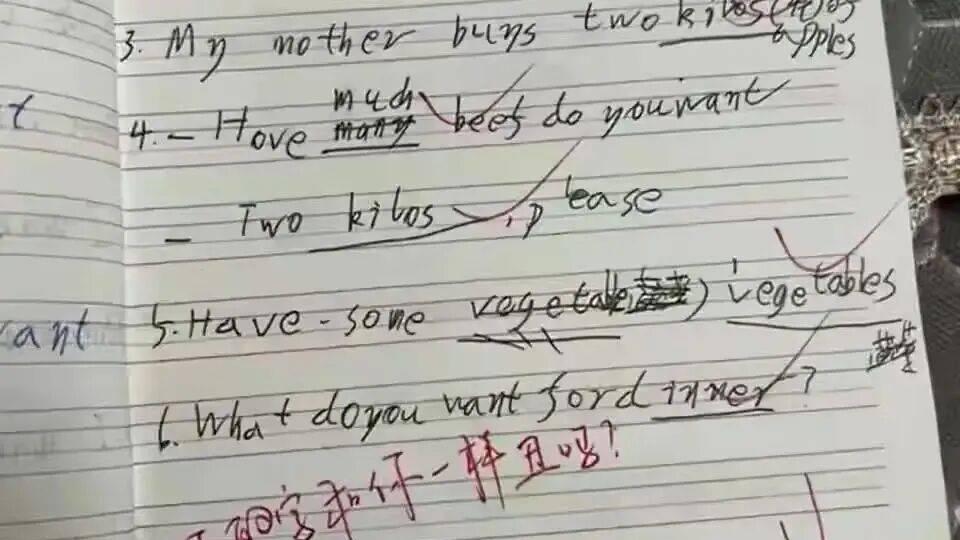 3. My mother buys two kilos of apples
much
4. - Hove many beef do you want
- Two kilos, please
5. Have some vegetable) vegetables
6. What do you want for dinner?
和你一样且吗?
ant